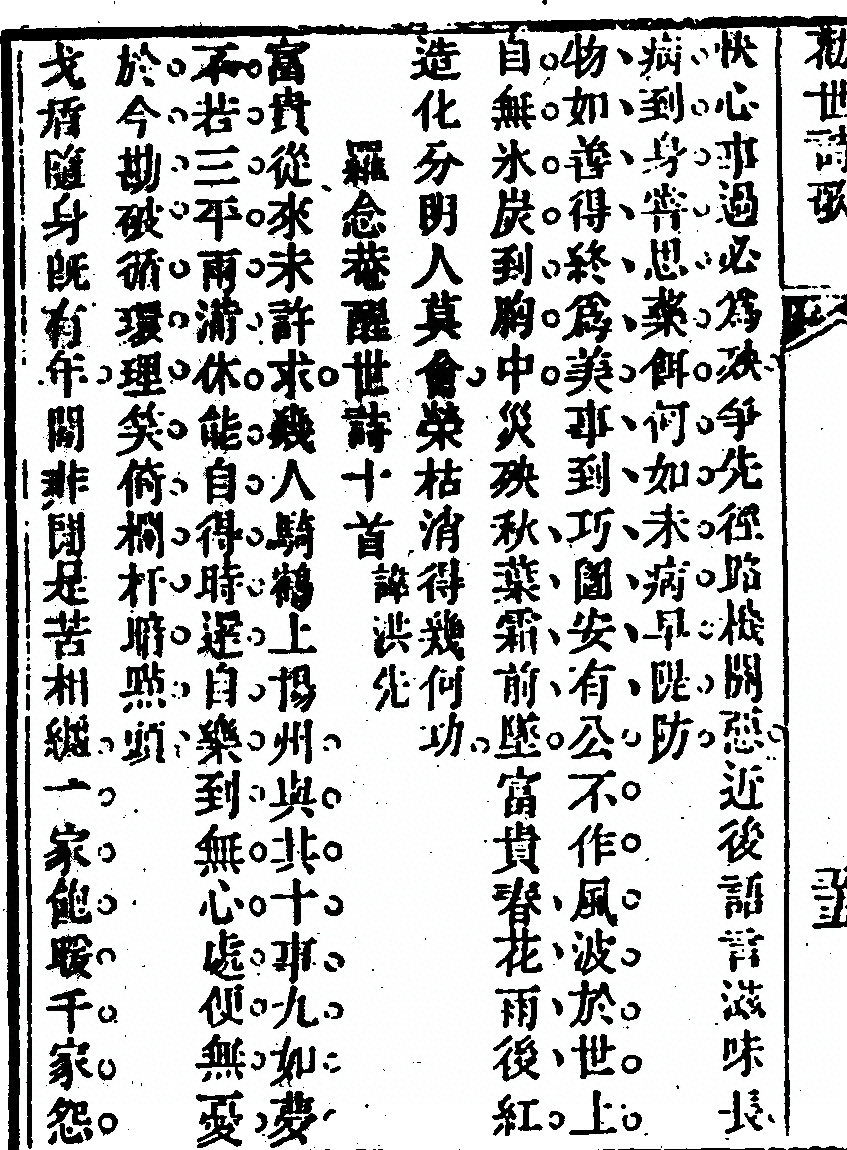 勸世詩歌
快心事過必為殃爭先徑路機關惡近後語言滋味長
病到身常思藥餌何如未病早隄防
物如善得終為美事到巧圖安有公不作風波於世上
自無氷炭到胸中災殃秋葉霜前墜富貴春花雨後紅
造化分明人莫會榮枯消得幾何功
羅念菴醒世詩十首 諱洪先
富貴從來未許求幾人騎鶴上揚州與其十事九如夢
不若三平兩滿休能自得時還自樂到無心處便無憂
於今勘破循環理笑倚欄杆暗點頭
戈盾隨身旣有年閒非閒是苦相纏一家飽暖千家怨